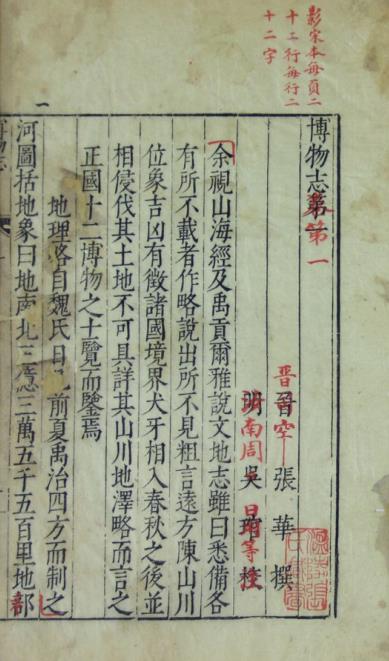 影宋本每頁二
十二行每行二
十二字
博物志卷第一
晉司空張華撰
汝南周日用等注
明吳琯校
余視山海經及禹貢爾雅說文地志雖曰悉備各
有所不載者作略說出所不見粗言遠方陳山川
位象吉凶有徵諸國境界犬牙相入春秋之後並
相侵伐其土地不可具詳其山川地澤略而言之
正國十二博物之士覽而鑒焉
地理略自魏氏日已前夏禹治四方而制之
河圖括地象曰地南北三億三萬五千五百里地部